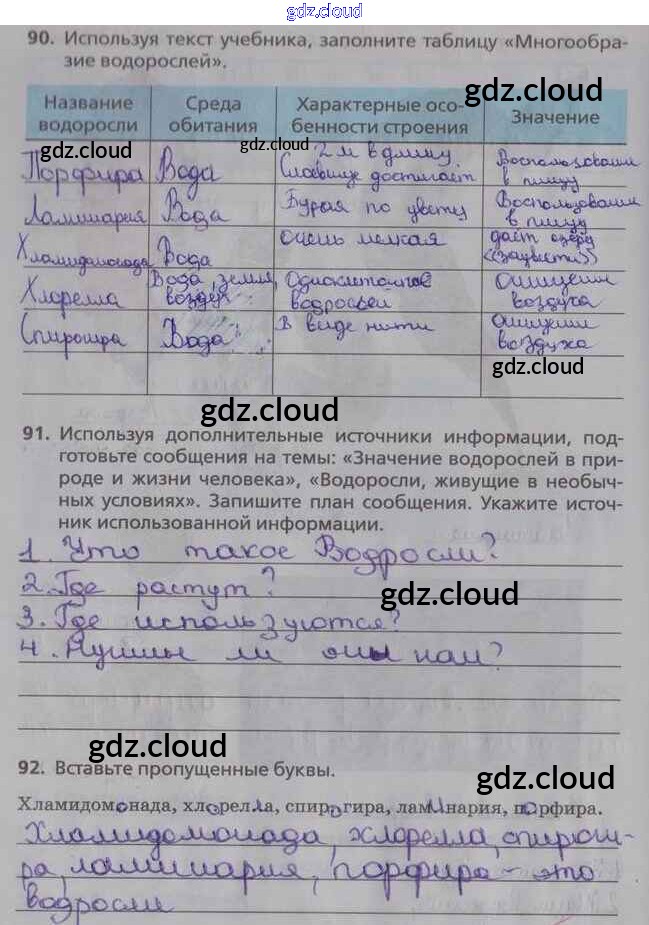 gdz.cloud
90. Используя текст учебника, заполните таблицу «Многообра-
зие водорослей».
Название водоросли
Среда обитания
Характерные осо-
бенности строения
Значение
gdz.cloud
Порфира
Вода
2 м в длину.
Слоевище достигает
в пищу
gdz.cloud
gdz.cloud
Ламинария
Вода
Бурая по цвету
в пищу
Хламидомонада
Вода
очень мелкая
даёт озеру
Хлорелла
Вода, земля,
воздух
водросьеи
воздуха
Вода
В виде нити
воздуха
gdz.cloud
gdz.cloud
91. Используя дополнительные источники информации, под-
готовьте сообщения на темы: «Значение водорослей в при-
роде и жизни человека», «Водоросли, живущие в необыч-
ных условиях». Запишите план сообщения. Укажите источ-
ник использованной информации.
1. Что такое Водросли?
2. Где растут?
gdz.cloud
3. Где используются?
4. Нужны ли они нам?
gdz.cloud
92. Вставьте пропущенные буквы.
gdz.cloud
Хламидомонада, хлорелла, спирогира, ламинария, порфира.
Хламидомонада, хлорелла, спироги-
ра, ламинария, порфира - это
водросли